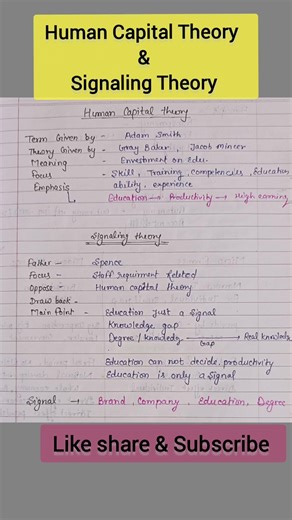 Human Capital Theory
&
Signaling Theory
Human Capital Theory
Term Given by - Adam Smith
Theory Given by - Gray Baker, Jacob mincer
Meaning - Envestment on Edu.
Focus - Skill, Training, Competencies, Education
Emphasis ability, experience
Education → Productivity → High earning
Signaling theory
Father - Spence
Focus - Staff requirment Related
Oppose - Human capital theory
Draw back -
Main Point - Education Just a Signal
Knowledge gap
Degree / knowledge → Real knowledge
Gap
Education can not decide productivity
Education is only a Signal
Signal → Brand, Company, Education, Degree
Like share & Subscribe